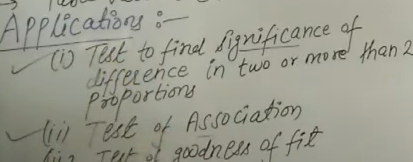 Applications :-
(i) Test to find significance of
difference in two or more than 2
proportions
(ii) Test of Association
Test of goodness of fit